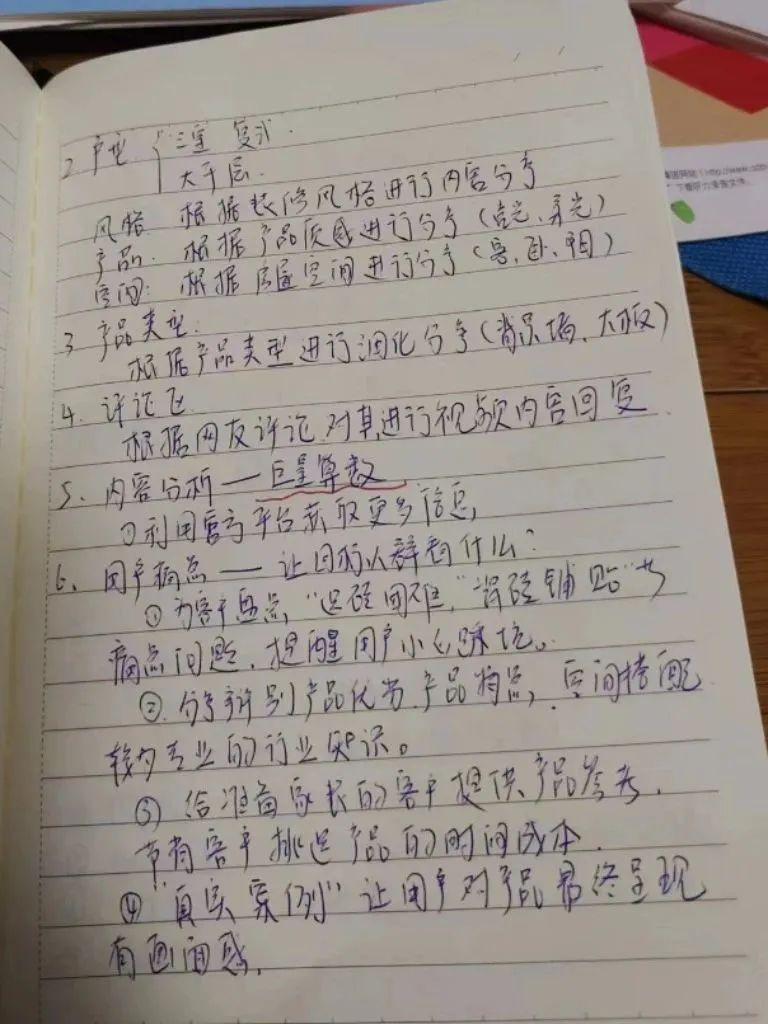 2 户型 { 三室 复式.
大平层.
风格 根据装修风格进行内容分享
产品: 根据产品质感进行分享(亮光、柔光)
空间: 根据房屋空间进行分享(客、卧、)
3 产品类型:
根据产品类型进行细化分享(背景墙、大板)
4. 评论区
根据网友评论,对其进行视频内容回复
5、内容分析—巨量算数
①利用官方平台获取更多信息,
6、用户痛点—让目标人群看什么?
①为客户盘点,"选砖困难,"瓷砖铺贴"为
痛点问题,提醒用户小心踩坑。
②.分享辨别产品优劣,产品特点,空间搭配
较为专业的行业知识。
③ 给准备家装的客户提供产品参考,
节省客户挑选产品的时间成本.
④ "真实案例"让用户对产品最终呈现
有画面感,
下载听力录音文件.